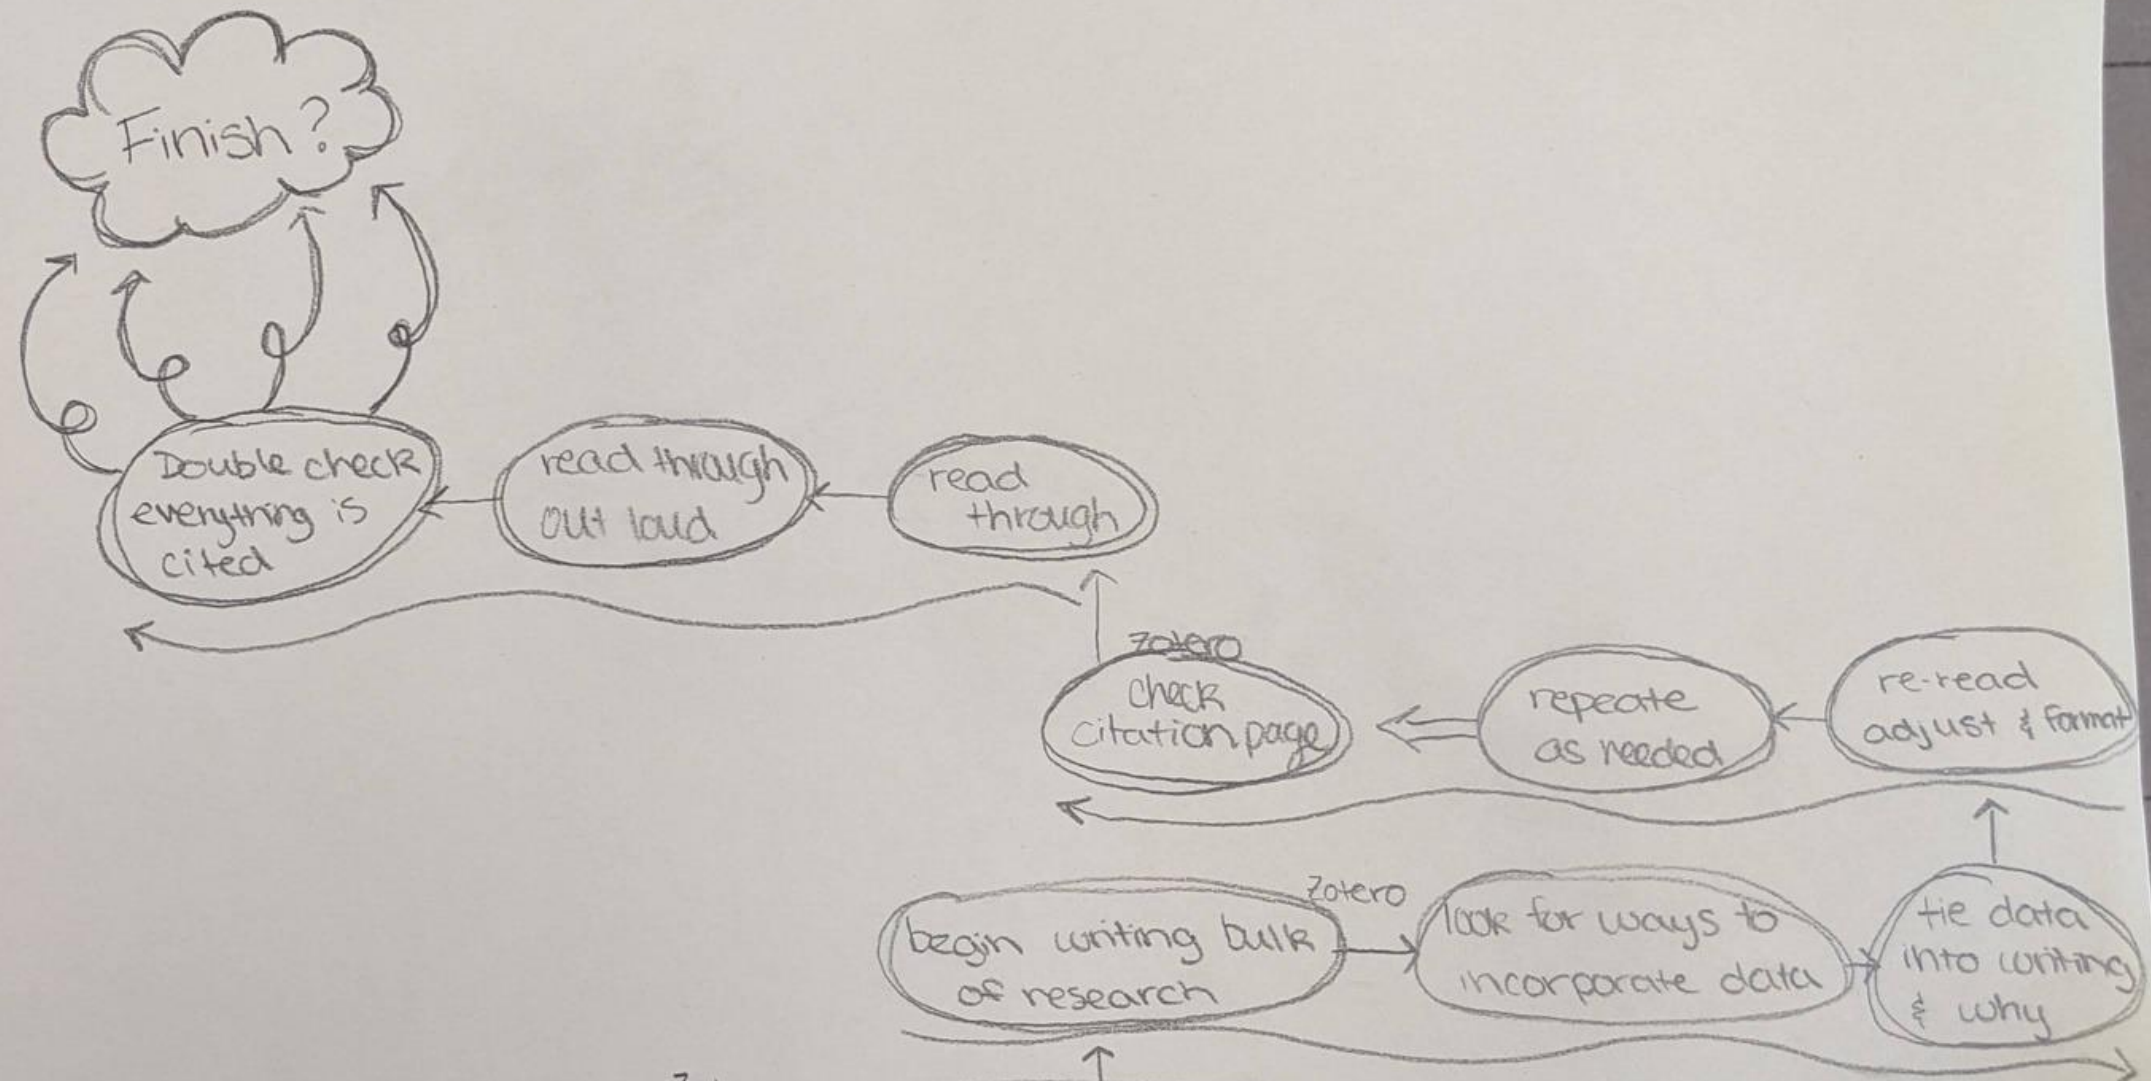 Finish?
Double check
everything is
cited
read through
out loud
read
through
zotero
check
citation page
repeate
as needed
re-read
adjust & format
begin writing bulk
of research
Zotero
look for ways to
incorporate data
tie data
into writing
& why